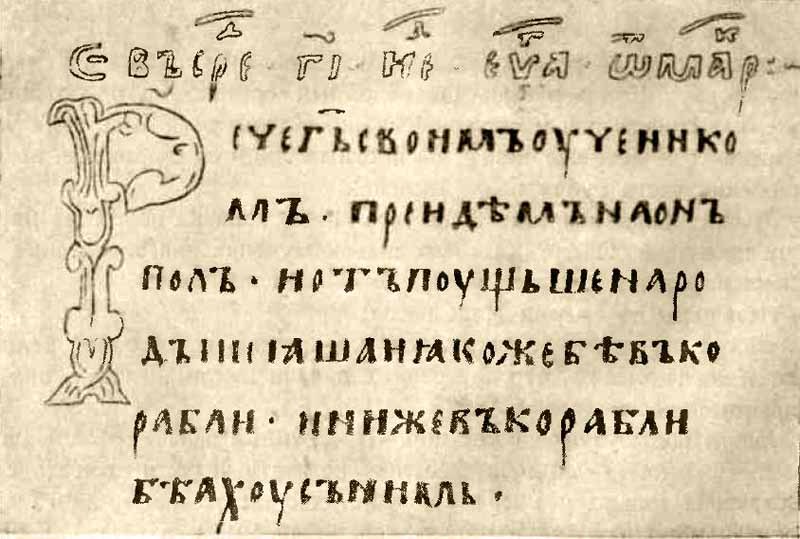 С въ срⷣе · г҃і · нⷣе · еѵⷢа · ѿ маⷬр :~
Речег҃ьсвоимъоученико
мъ · преидѣмънаонъ
полъ · иотъпоущьшенаро
дъıиꙗшаиꙗкожебѣвъко
рабли · иниижевъкорабли
бѣахоусънимь ·